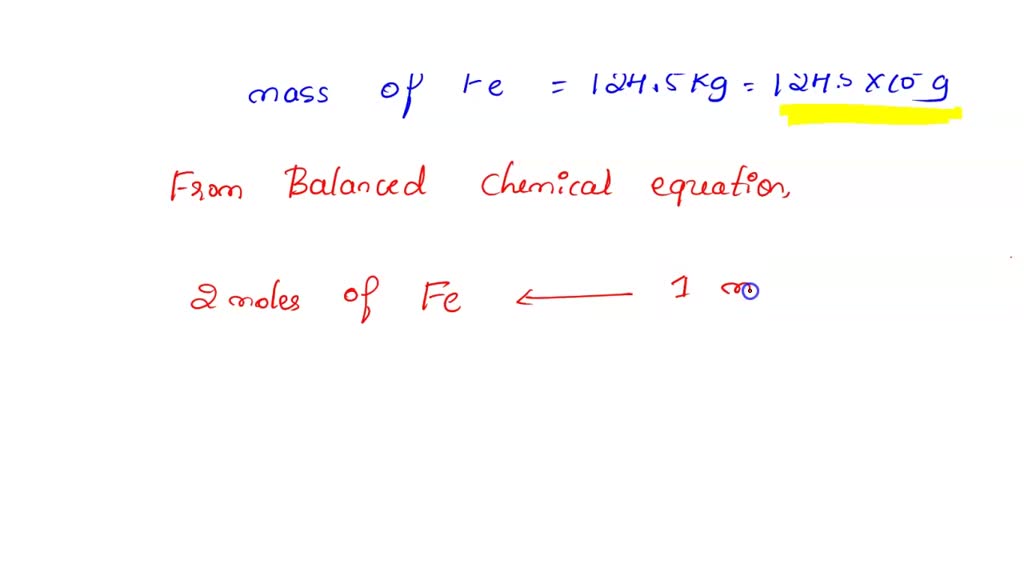 mass of Fe = 124.5 Kg = 124.5 × 10 g
From Balanced chemical equation,
2 moles of Fe ← 1 m